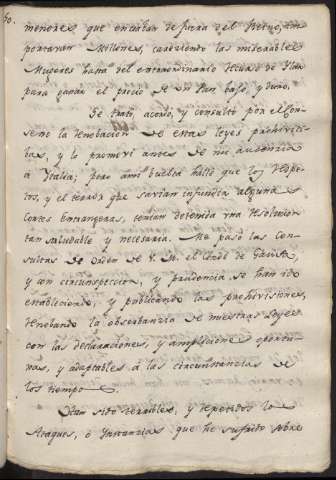 menores que enciaban de fuera del Reyno, im-
portavan Millones, careciendo las miserables
Mugeres hasta del extraordinario recurso de
para ganar el precio de un Pan bajo, y duro.
Se trató, acordó, y consultó por el Con-
sejo la renobacion de estas leyes prohiviti-
bas, y lo promoví antes de mi ausencia
a Ytalia; pero a mi buelta hallé que los respe-
tos, y el temor que savian infundir algunas
Cortes Extrangeras, tenian detenida una resolucion
tan saludable y necesaria. Me pasó las con-
sultas de orden de V. M. el Conde de Gausa,
y con circunspeccion, y prudencia se han ido
estableciendo, y publicando las prohiviciones,
renobando la observancia de nuestras Leyes
con las declaraciones, y ampliaciones oportu-
nas, y adaptables á las circunstancias de
los tiempos.
Han sido terribles, y repetidos los
Ataques, é Instancias que he sufrido sobre